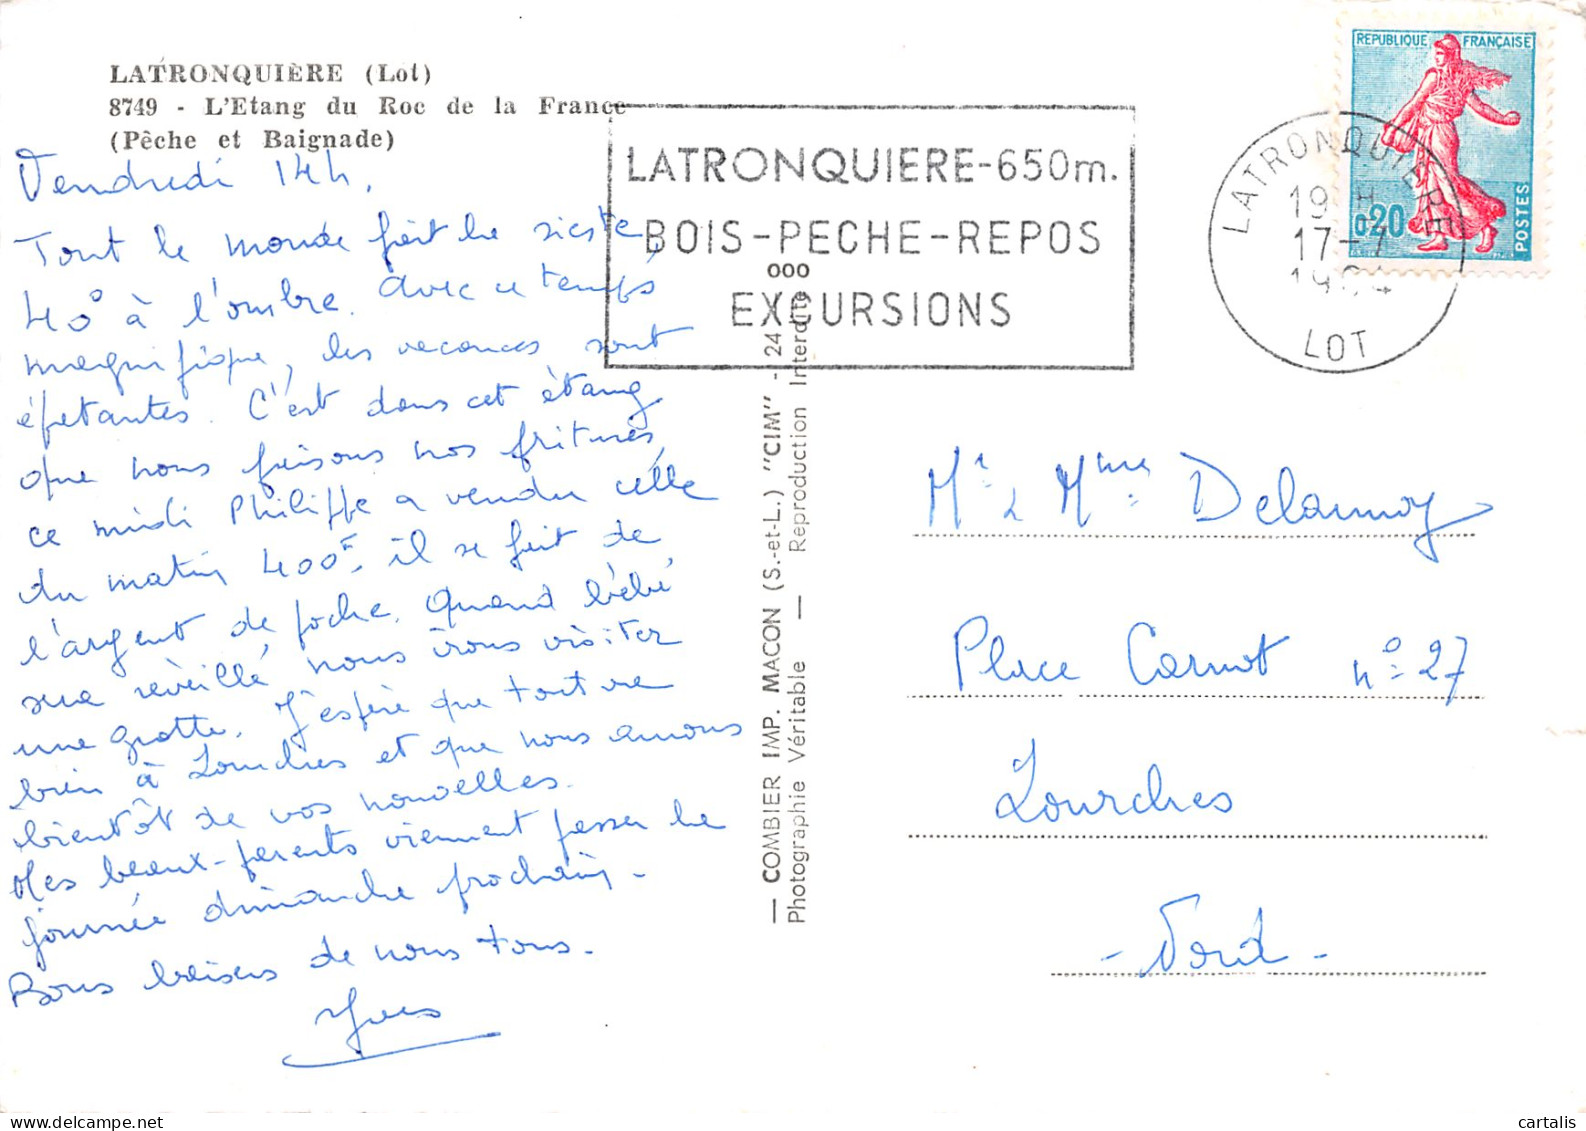 LATRONQUIÈRE (Lot)
8749 - L'Etang du Roc de la France
(Pêche et Baignade)
Vendredi 14h.
Tout le monde fait la sieste,
40° à l'ombre. Avec ce temps
magnifique, les vacances sont
épatantes. C'est dans cet étang
que nous faisons nos fritures,
ce midi Philippe a vendu celle
du matin 400F, il se fait de
l'argent de poche. Quand bébé
sera réveillé nous irons visiter
une grotte. J'espère que tout va
bien à Lourches et que nous aurons
bientôt de vos nouvelles.
Mes beaux-parents viennent passer la
journée dimanche prochain.
Bons baisers de nous tous.
Yves
— COMBIER IMP. MACON (S.-et-L.) "CIM" - 24
Photographie Véritable — Reproduction Interdite
LATRONQUIERE-650m.
BOIS-PECHE-REPOS
ooo
EXCURSIONS
LATRONQUIERE
19H
17-7
1964
LOT
REPUBLIQUE FRANÇAISE
0,20
POSTES
Mr & Mme Delannoy
Place Carnot n° 27
Lourches
- Nord -
Delcampe.net
cartalis